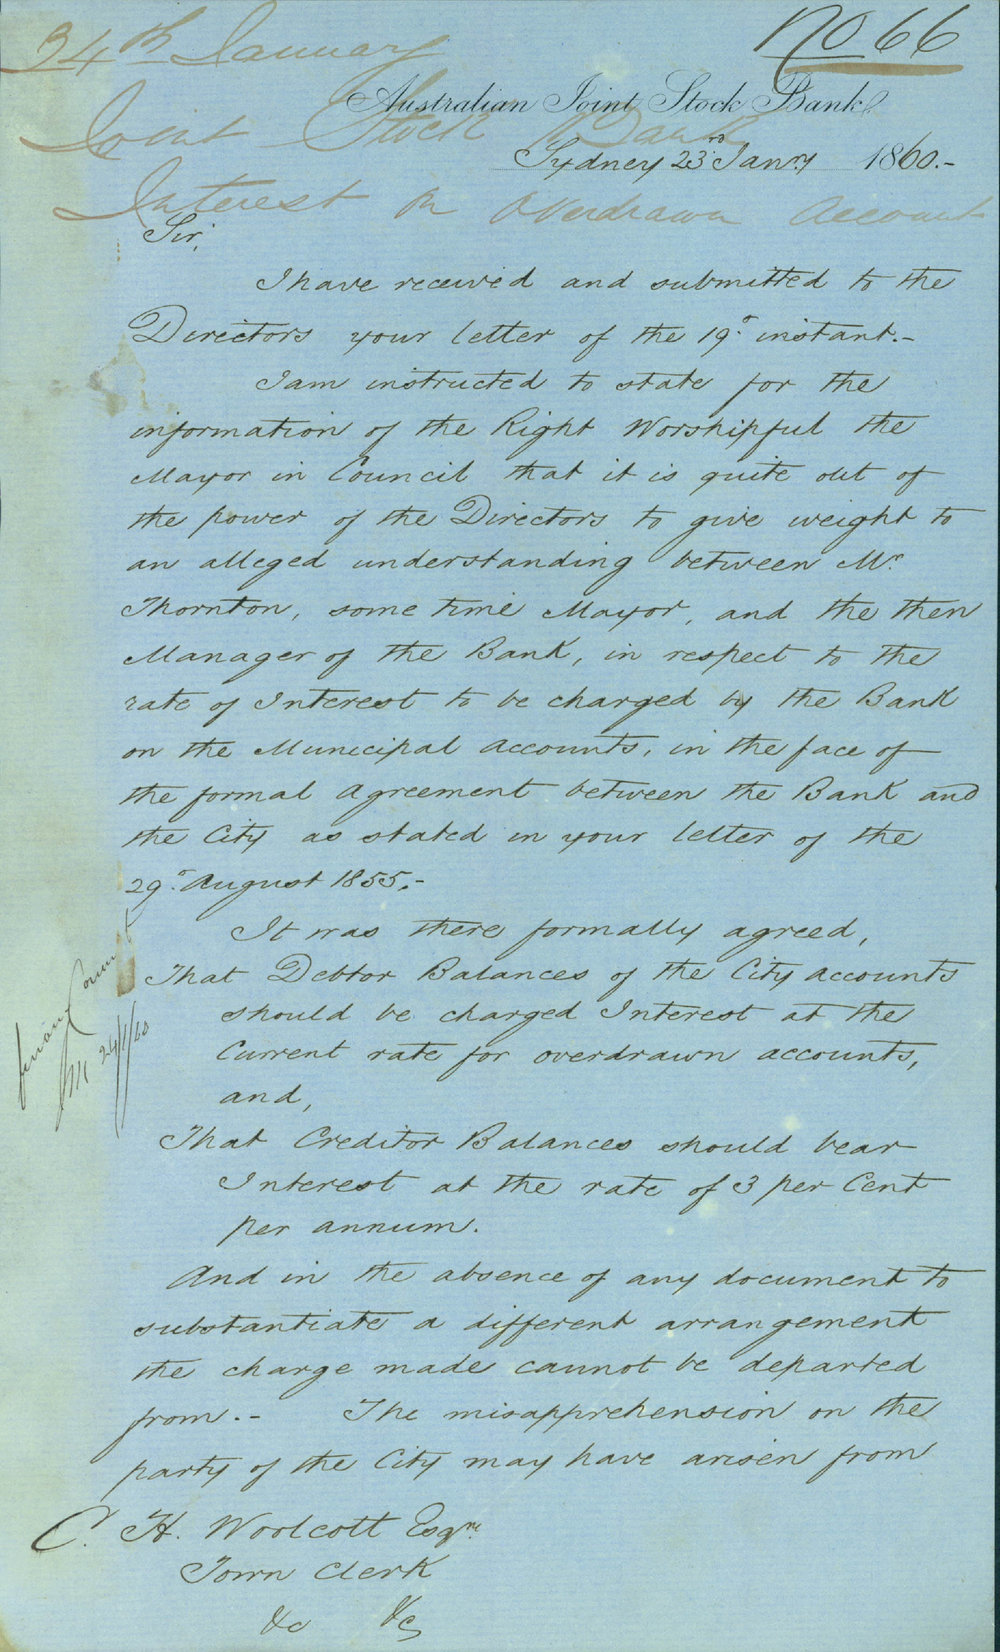 24th January
No 66
Australian Joint Stock Bank,
Joint Stock Bank
Sydney 23rd Janry 1860.-
Interest on Overdrawn Account
Sir,
I have received and submitted to the
Directors your letter of the 19o. instant.-
I am instructed to state for the
information of the Right Worshipful the
Mayor in Council that it is quite out of
the power of the Directors to give weight to
an alleged understanding between Mr.
Thornton, some time Mayor, and the then
Manager of the Bank, in respect to the
rate of Interest to be charged by the Bank
on the Municipal Accounts, in the face of
the formal Agreement between the Bank and
the City as stated in your letter of the
29o. August 1855.-
It was there formally agreed,
That Debtor Balances of the City Accounts
should be charged Interest at the
Current rate for overdrawn accounts,
and,
That Creditor Balances should bear
Interest at the rate of 3 per Cent
per annum.
And in the absence of any document to
substantiate a different arrangement
the charge made cannot be departed
from.- The misapprehension on the
party of the City may have arisen from
C. H. Woolcott Esqre.
Town Clerk
&c &c
24/1/60